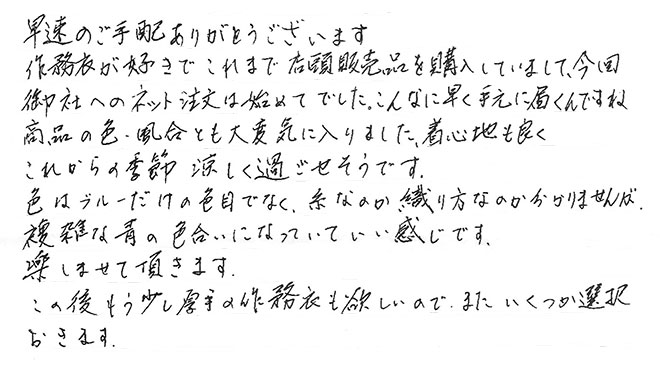 早速のご手配ありがとうございます
作務衣が好きでこれまで店頭販売品を購入していまして、今回
御社へのネット注文は始めてでした。こんなに早く手元に届くんですね
商品の色・風合とも大変気に入りました、着心地も良く
これからの季節 涼しく過ごせそうです。
色はブルーだけの色目でなく、糸なのか織り方なのか分かりませんが、
複雑な青の色合いになっていていい感じです。
楽しませて頂きます。
この後もう少し厚手の作務衣も欲しいので、またいくつか選択
おきます。